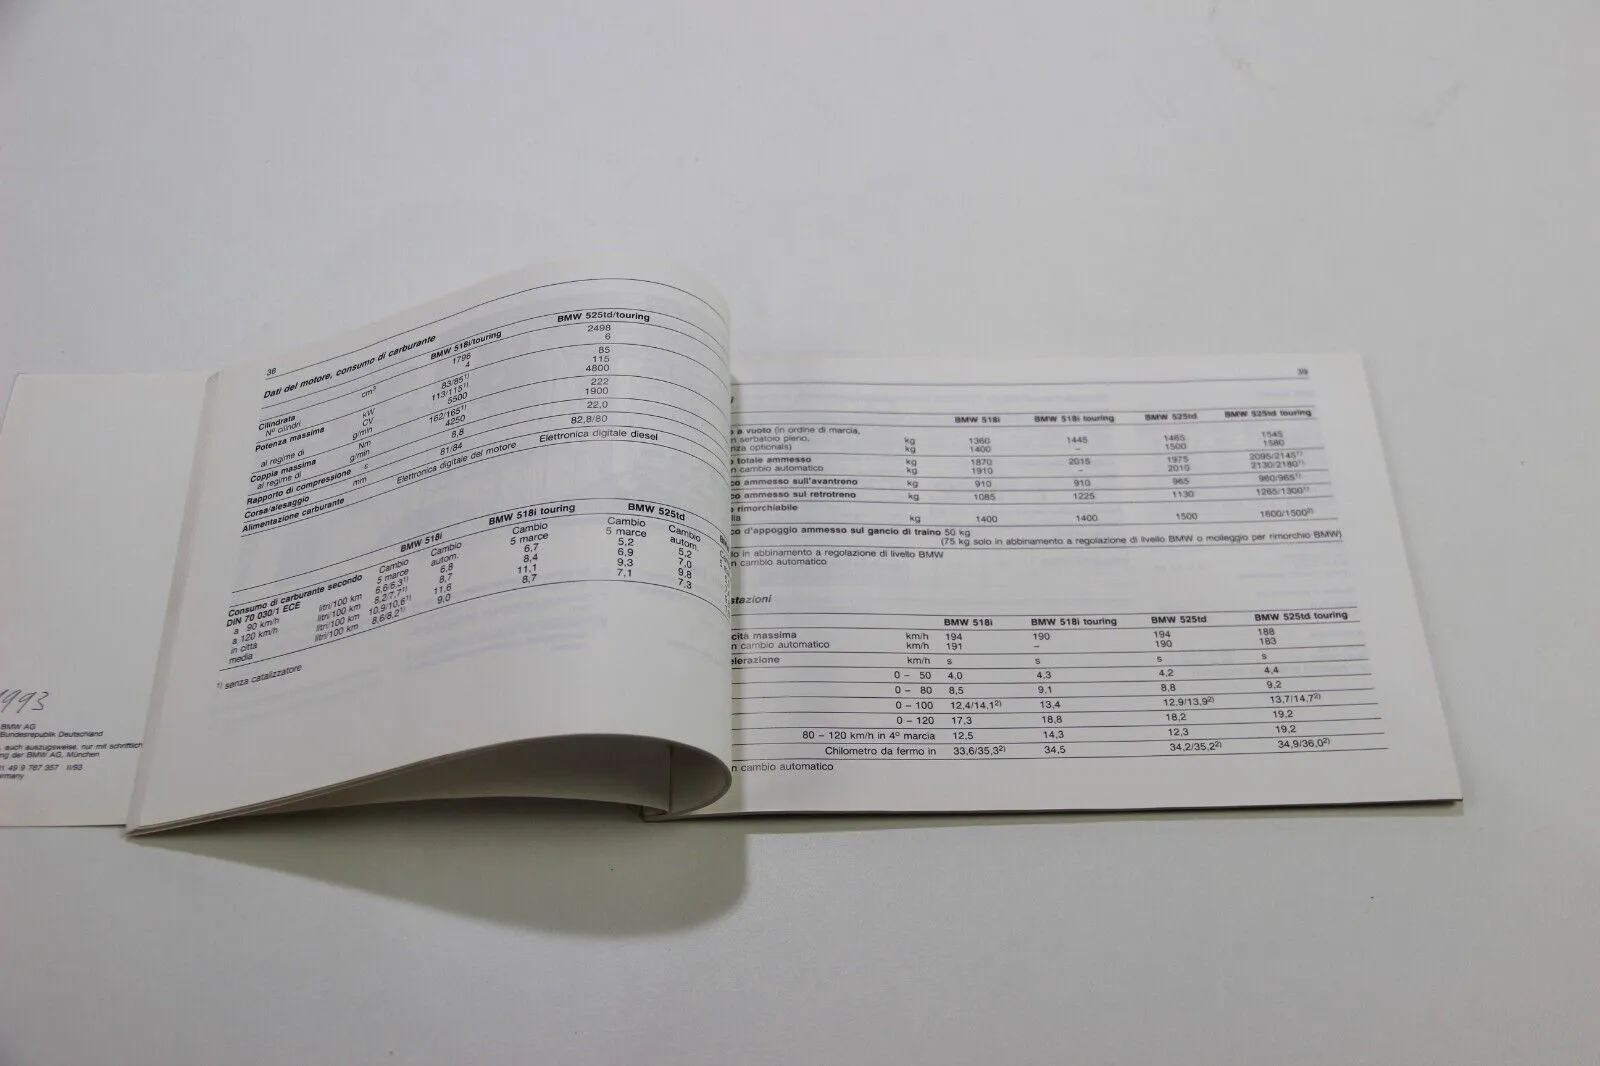 1993
BMW AG
Bundesrepublik Deutschland
auch auszugsweise, nur mit schriftlich
der BMW AG, München
49 9 787 357 II/93
38
Dati del motore, consumo di carburante
BMW 518i/touring BMW 525td/touring
Cilindrata cm³ 1796 2498
Nº cilindri 4 6
Potenza massima kW 83/85¹⁾ 85
CV 113/115¹⁾ 115
al regime di g/min 5500 4800
Coppia massima Nm 162/165¹⁾ 222
al regime di g/min 4250 1900
Rapporto di compressione ε 8,8 22,0
Corsa/alesaggio mm 81/84 82,8/80
Alimentazione carburante Elettronica digitale del motore Elettronica digitale diesel
BMW 518i BMW 518i touring BMW 525td
Consumo di carburante secondo Cambio Cambio Cambio Cambio Cambio
DIN 70 030/1 ECE 5 marce autom. 5 marce 5 marce autom.
a 90 km/h litri/100 km 6,6/6,3¹⁾ 6,8 6,7 5,2 5,2
a 120 km/h litri/100 km 8,2/7,7¹⁾ 8,7 8,4 6,9 7,0
in città litri/100 km 10,9/10,6¹⁾ 11,6 11,1 9,3 9,8
media litri/100 km 8,6/8,2¹⁾ 9,0 8,7 7,1 7,3
¹⁾ senza catalizzatore
39
BMW 518i BMW 518i touring BMW 525td BMW 525td touring
a vuoto (in ordine di marcia,
serbatoio pieno, kg 1360 1445 1465 1545
optionals) kg 1400 – 1500 1580
totale ammesso kg 1870 2015 1975 2095/2145¹⁾
cambio automatico kg 1910 – 2010 2130/2180¹⁾
ammesso sull'avantreno kg 910 910 965 960/965¹⁾
ammesso sul retrotreno kg 1085 1225 1130 1265/1300¹⁾
rimorchiabile
kg 1400 1400 1500 1600/1500²⁾
d'appoggio ammesso sul gancio di traino 50 kg
(75 kg solo in abbinamento a regolazione di livello BMW o molleggio per rimorchio BMW)
in abbinamento a regolazione di livello BMW
cambio automatico
stazioni
BMW 518i BMW 518i touring BMW 525td BMW 525td touring
cità massima km/h 194 190 194 188
n cambio automatico km/h 191 – 190 183
elerazione km/h s s s s
0 – 50 4,0 4,3 4,2 4,4
0 – 80 8,5 9,1 8,8 9,2
0 – 100 12,4/14,1²⁾ 13,4 12,9/13,9²⁾ 13,7/14,7²⁾
0 – 120 17,3 18,8 18,2 19,2
80 – 120 km/h in 4º marcia 12,5 14,3 12,3 19,2
Chilometro da fermo in 33,6/35,3²⁾ 34,5 34,2/35,2²⁾ 34,9/36,0²⁾
n cambio automatico